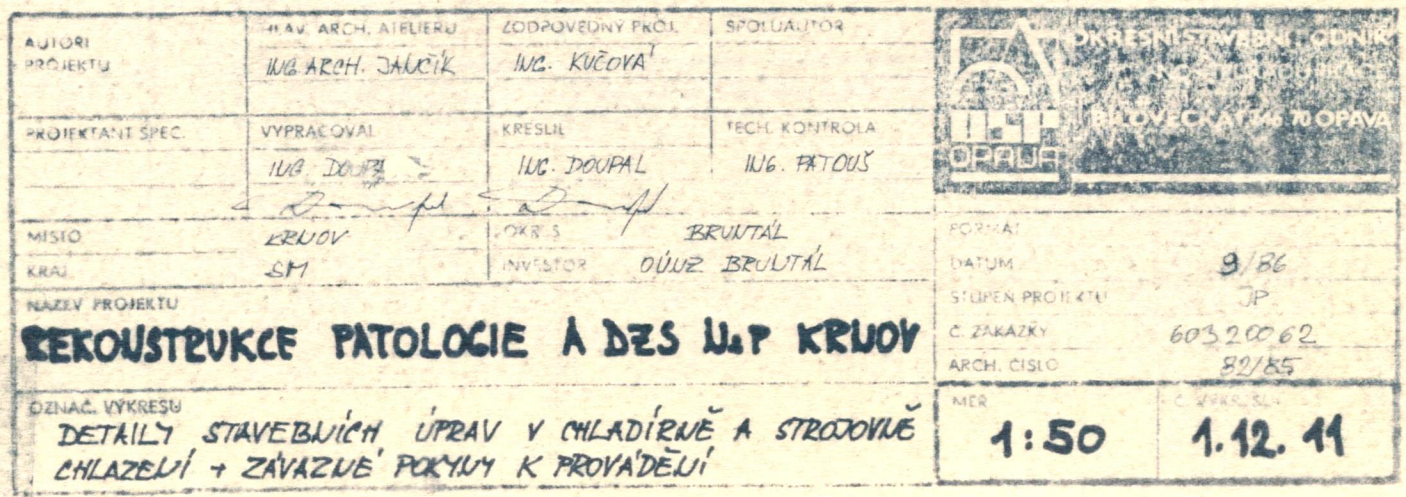 AUTORI PROJEKTU
HLAV. ARCH. ATELIERU
ING ARCH. JANČÍK
ZODPOVEDNÝ PROJ.
ING. KUČOVÁ
SPOLUAUTOR
PROJEKTANT SPEC.
VYPRACOVAL
ING. DOUPAL
KRESLIL
ING. DOUPAL
TECH. KONTROLA
ING. PATOUŠ
MISTO
KRNOV
OKRES
BRUNTÁL
KRAJ
SM
INVESTOR
OÚNZ BRUNTÁL
NAZEV PROJEKTU
REKONSTRUKCE PATOLOGIE A DZS NsP KRNOV
OZNAC. VYKRESU
DETAILY STAVEBNÍCH ÚPRAV V CHLADÍRNĚ A STROJOVNĚ
CHLAZENÍ + ZÁVAZNÉ POKYNY K PROVÁDĚNÍ
OKRESNI STAVEBNI PODNIK
BÍLOVECKÁ 746 70 OPAVA
OPAVA
FORMAT
DATUM
9/86
STUPEŇ PROJEKTU
JP
Č. ZAKAZKY
60320062
ARCH. CISLO
82/85
MER
1:50
Č. VYKR.
1.12.11